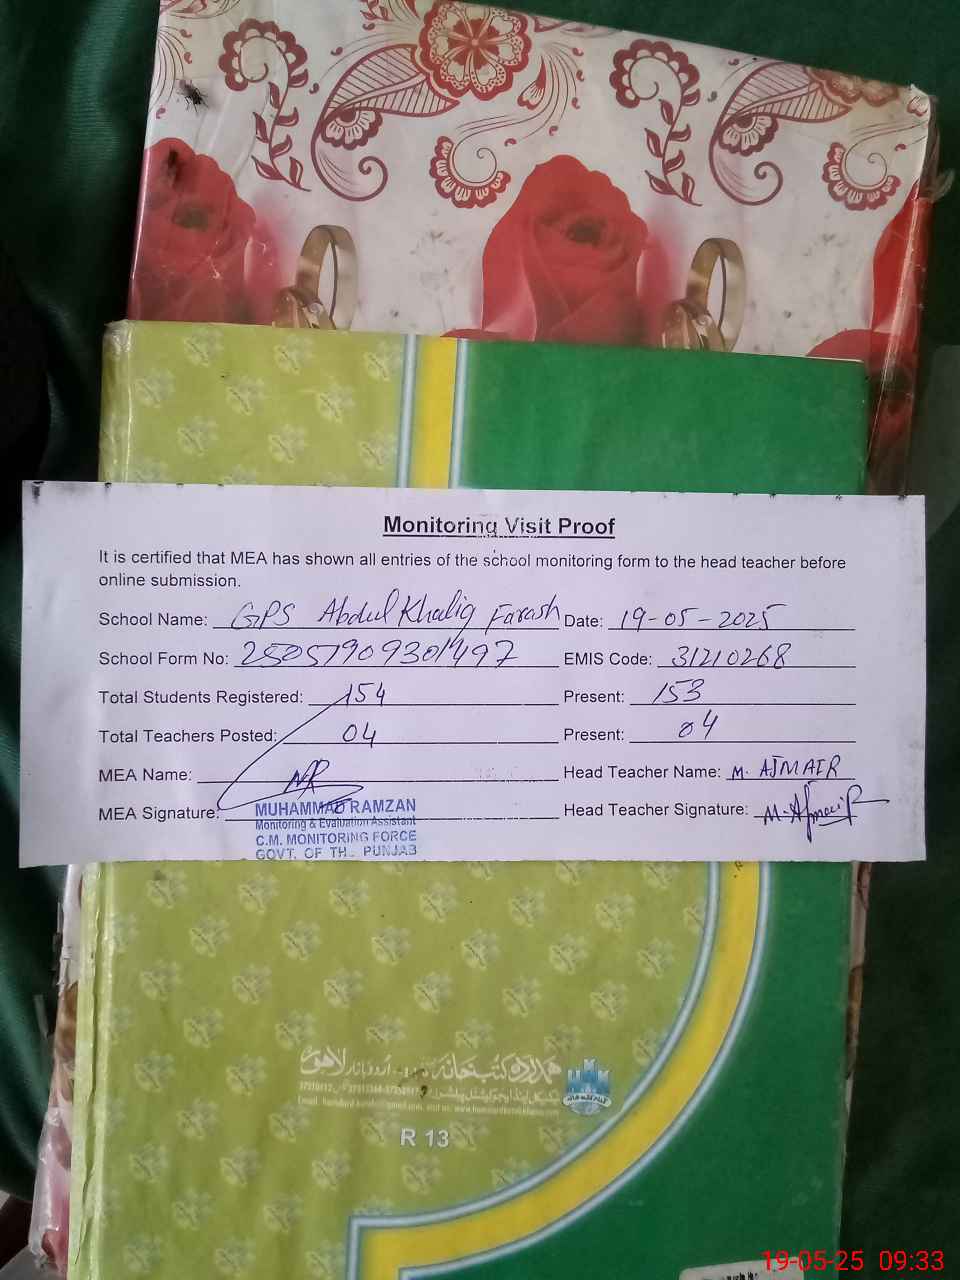 Monitoring Visit Proof
It is certified that MEA has shown all entries of the school monitoring form to the head teacher before
online submission.
School Name: GPS Abdul Khaliq Farash Date: 19-05-2025
School Form No: 25051909301497 EMIS Code: 31210268
Total Students Registered: 154 Present: 153
Total Teachers Posted: 04 Present: 04
MEA Name: MR Head Teacher Name: M. AJMAIR
MEA Signature: Head Teacher Signature: M. Ajmair
MUHAMMAD RAMZAN
Monitoring & Evaluation Assistant
C.M. MONITORING FORCE
GOVT. OF THE PUNJAB
ہمدرد کتب خانہ اردو بازار لاہور
R 13
19-05-25 09:33